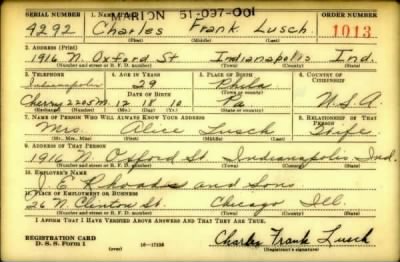 MARION 51-097-001
SERIAL NUMBER 1. NAME (Print) ORDER NUMBER
4292 Charles Frank Lusch 1013
(First) (Middle) (Last)
2. ADDRESS (Print)
1916 N. Oxford St Indianapolis Ind.
(Number and street or R. F. D. number) (Town) (County) (State)
3. TELEPHONE 4. AGE IN YEARS 5. PLACE OF BIRTH 6. COUNTRY OF CITIZENSHIP
Indianapolis 29 Phila
DATE OF BIRTH
Cherry 2205M 12 18 10 Pa U.S.A.
(Exchange) (Number) (Mo.) (Day) (Yr.) (State or country)
7. NAME OF PERSON WHO WILL ALWAYS KNOW YOUR ADDRESS 8. RELATIONSHIP OF THAT PERSON
Mrs. Alice Lusch Wife
(Mr., Mrs., Miss) (First) (Middle) (Last)
9. ADDRESS OF THAT PERSON
1916 N. Oxford St. Indianapolis Ind.
(Number and street or R. F. D. number) (Town) (County) (State)
10. EMPLOYER'S NAME
E. Rhoads and Sons.
11. PLACE OF EMPLOYMENT OR BUSINESS
26 N. Clinton St. Chicago Ill.
(Number and street or R. F. D. number) (Town) (County) (State)
I AFFIRM THAT I HAVE VERIFIED ABOVE ANSWERS AND THAT THEY ARE TRUE.
REGISTRATION CARD
D. S. S. Form 1 (over) 16-17105 Charles Frank Lusch
(Registrant's signature)